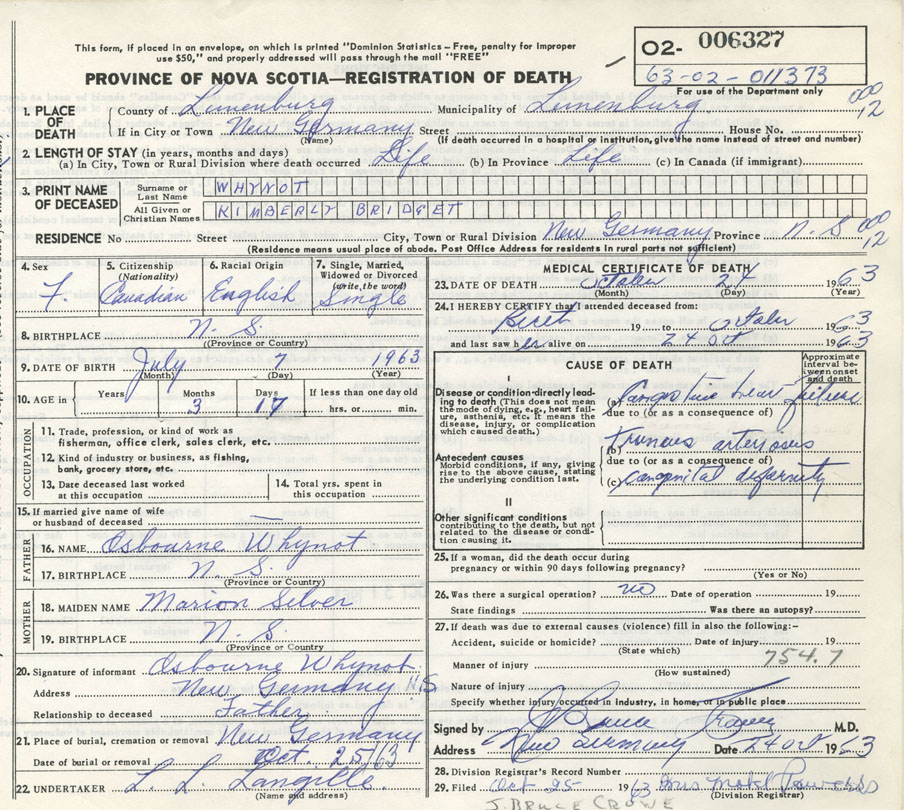 This form, if placed in an envelope, on which is printed "Dominion Statistics – Free, penalty for improper
use $50," and properly addressed will pass through the mail "FREE"
O2- 006327
63-02-011373
For use of the Department only
PROVINCE OF NOVA SCOTIA—REGISTRATION OF DEATH
1. PLACE OF DEATH
County of Lunenburg Municipality of Lunenburg 000 12
If in City or Town New Germany Street House No.
(Name) (If death occurred in a hospital or institution, give the name instead of street and number)
2. LENGTH OF STAY (in years, months and days)
(a) In City, Town or Rural Division where death occurred Life (b) In Province Life (c) In Canada (if immigrant)
3. PRINT NAME OF DECEASED
Surname or Last Name WHYNOT
All Given or Christian Names KIMBERLY BRIDGET
RESIDENCE No Street City, Town or Rural Division New Germany Province N. S 000 12
(Residence means usual place of abode. Post Office Address for residents in rural parts not sufficient)
4. Sex F.
5. Citizenship (Nationality) Canadian
6. Racial Origin English
7. Single, Married, Widowed or Divorced (write the word) Single
8. BIRTHPLACE N. S.
(Province or Country)
9. DATE OF BIRTH July 7 1963
(Month) (Day) (Year)
10. AGE in Years Months 3 Days 17 If less than one day old hrs. or min.
OCCUPATION
11. Trade, profession or kind of work as
fisherman, office clerk, sales clerk, etc.
12. Kind of industry or business, as fishing,
bank, grocery store, etc.
13. Date deceased last worked
at this occupation
14. Total yrs. spent in
this occupation
15. If married give name of wife
or husband of deceased —
FATHER
16. NAME Osbourne Whynot
17. BIRTHPLACE N. S.
(Province or Country)
MOTHER
18. MAIDEN NAME Marion Silver
19. BIRTHPLACE N. S.
(Province or Country)
20. Signature of informant Osbourne Whynot
Address New Germany N.S
Relationship to deceased Father
21. Place of burial, cremation or removal New Germany
Date of burial or removal Oct. 25/63
22. UNDERTAKER L. L. Langille
(Name and address)
MEDICAL CERTIFICATE OF DEATH
23. DATE OF DEATH October 24 1963
(Month) (Day) (Year)
24. I HEREBY CERTIFY that I attended deceased from:
Birth 19 to October 1963
and last saw her alive on 24 Oct 1963
CAUSE OF DEATH
Approximate interval between onset and death
I
Disease or condition directly leading to death (This does not mean the mode of dying, e.g., heart failure, asthenia, etc. It means the disease, injury, or complication which caused death.)
(a) Congestive heart failure
due to (or as a consequence of)
Antecedent causes
Morbid conditions, if any, giving rise to the above cause, stating the underlying condition last.
(b) Truncus arteriosus
due to (or as a consequence of)
(c) Congenital deformity
II
Other significant conditions
contributing to the death, but not related to the disease or condition causing it.
25. If a woman, did the death occur during
pregnancy or within 90 days following pregnancy?
(Yes or No)
26. Was there a surgical operation? no Date of operation 19
State findings Was there an autopsy?
27. If death was due to external causes (violence) fill in also the following:-
Accident, suicide or homicide? Date of injury 19
(State which)
754.7
Manner of injury
(How sustained)
Nature of injury
Specify whether injury occurred in industry, in home, or in public place
Signed by M.D.
Address New Germany Date 24 Oct 1963
28. Division Registrar's Record Number
29. Filed Oct 25 1963 Mrs
(Division Registrar)
J. BRUCE CROWE